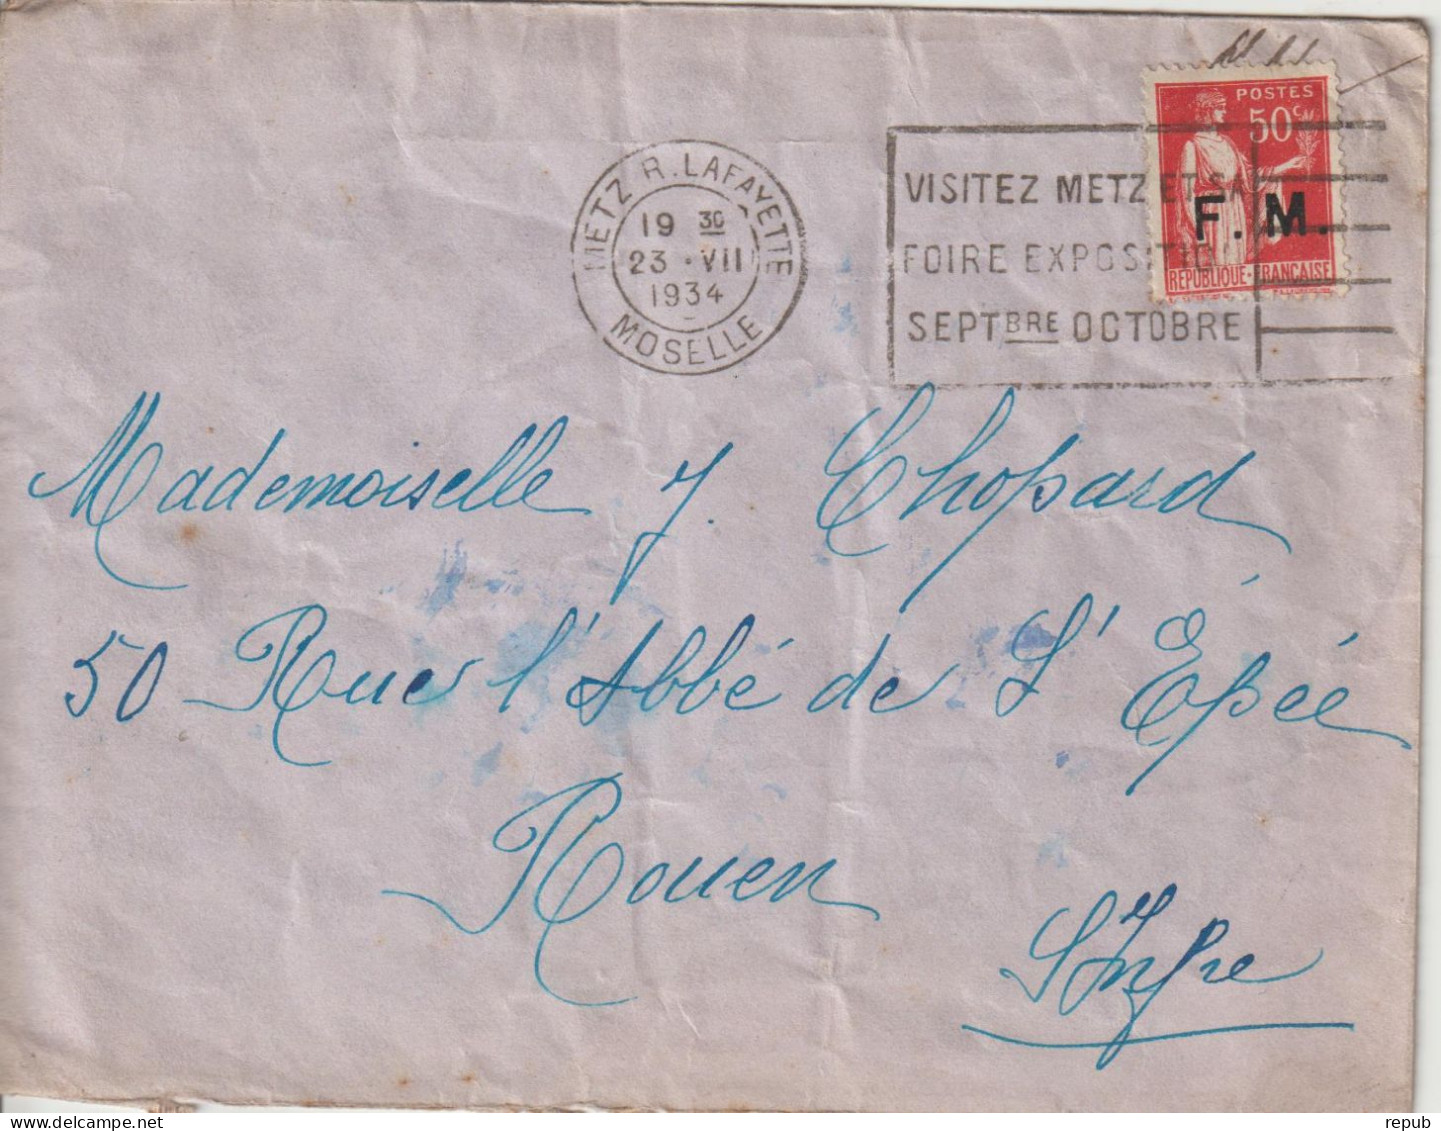 METZ R. LAFAYETTE
19 30
23 · VII
1934
MOSELLE
VISITEZ METZ ET SA
FOIRE EXPOSITIO
SEPTBRE OCTOBRE
POSTES
50c
F. M.
REPUBLIQUE · FRANÇAISE
Mademoiselle J. Chopard
50 Rue l'Abbé de L'Epée
Rouen
S. Infre
repub